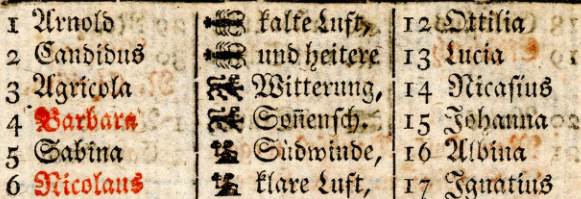 1 Arnold kalte Luft, 12 Ottilia
2 Candidus und heitere 13 Lucia
3 Agricola Witterung, 14 Nicasius
4 Barbara Son̄ensch. 15 Johanna
5 Sabina Südwinde, 16 Albina
6 Nicolaus klare Luft, 17 Ignatius